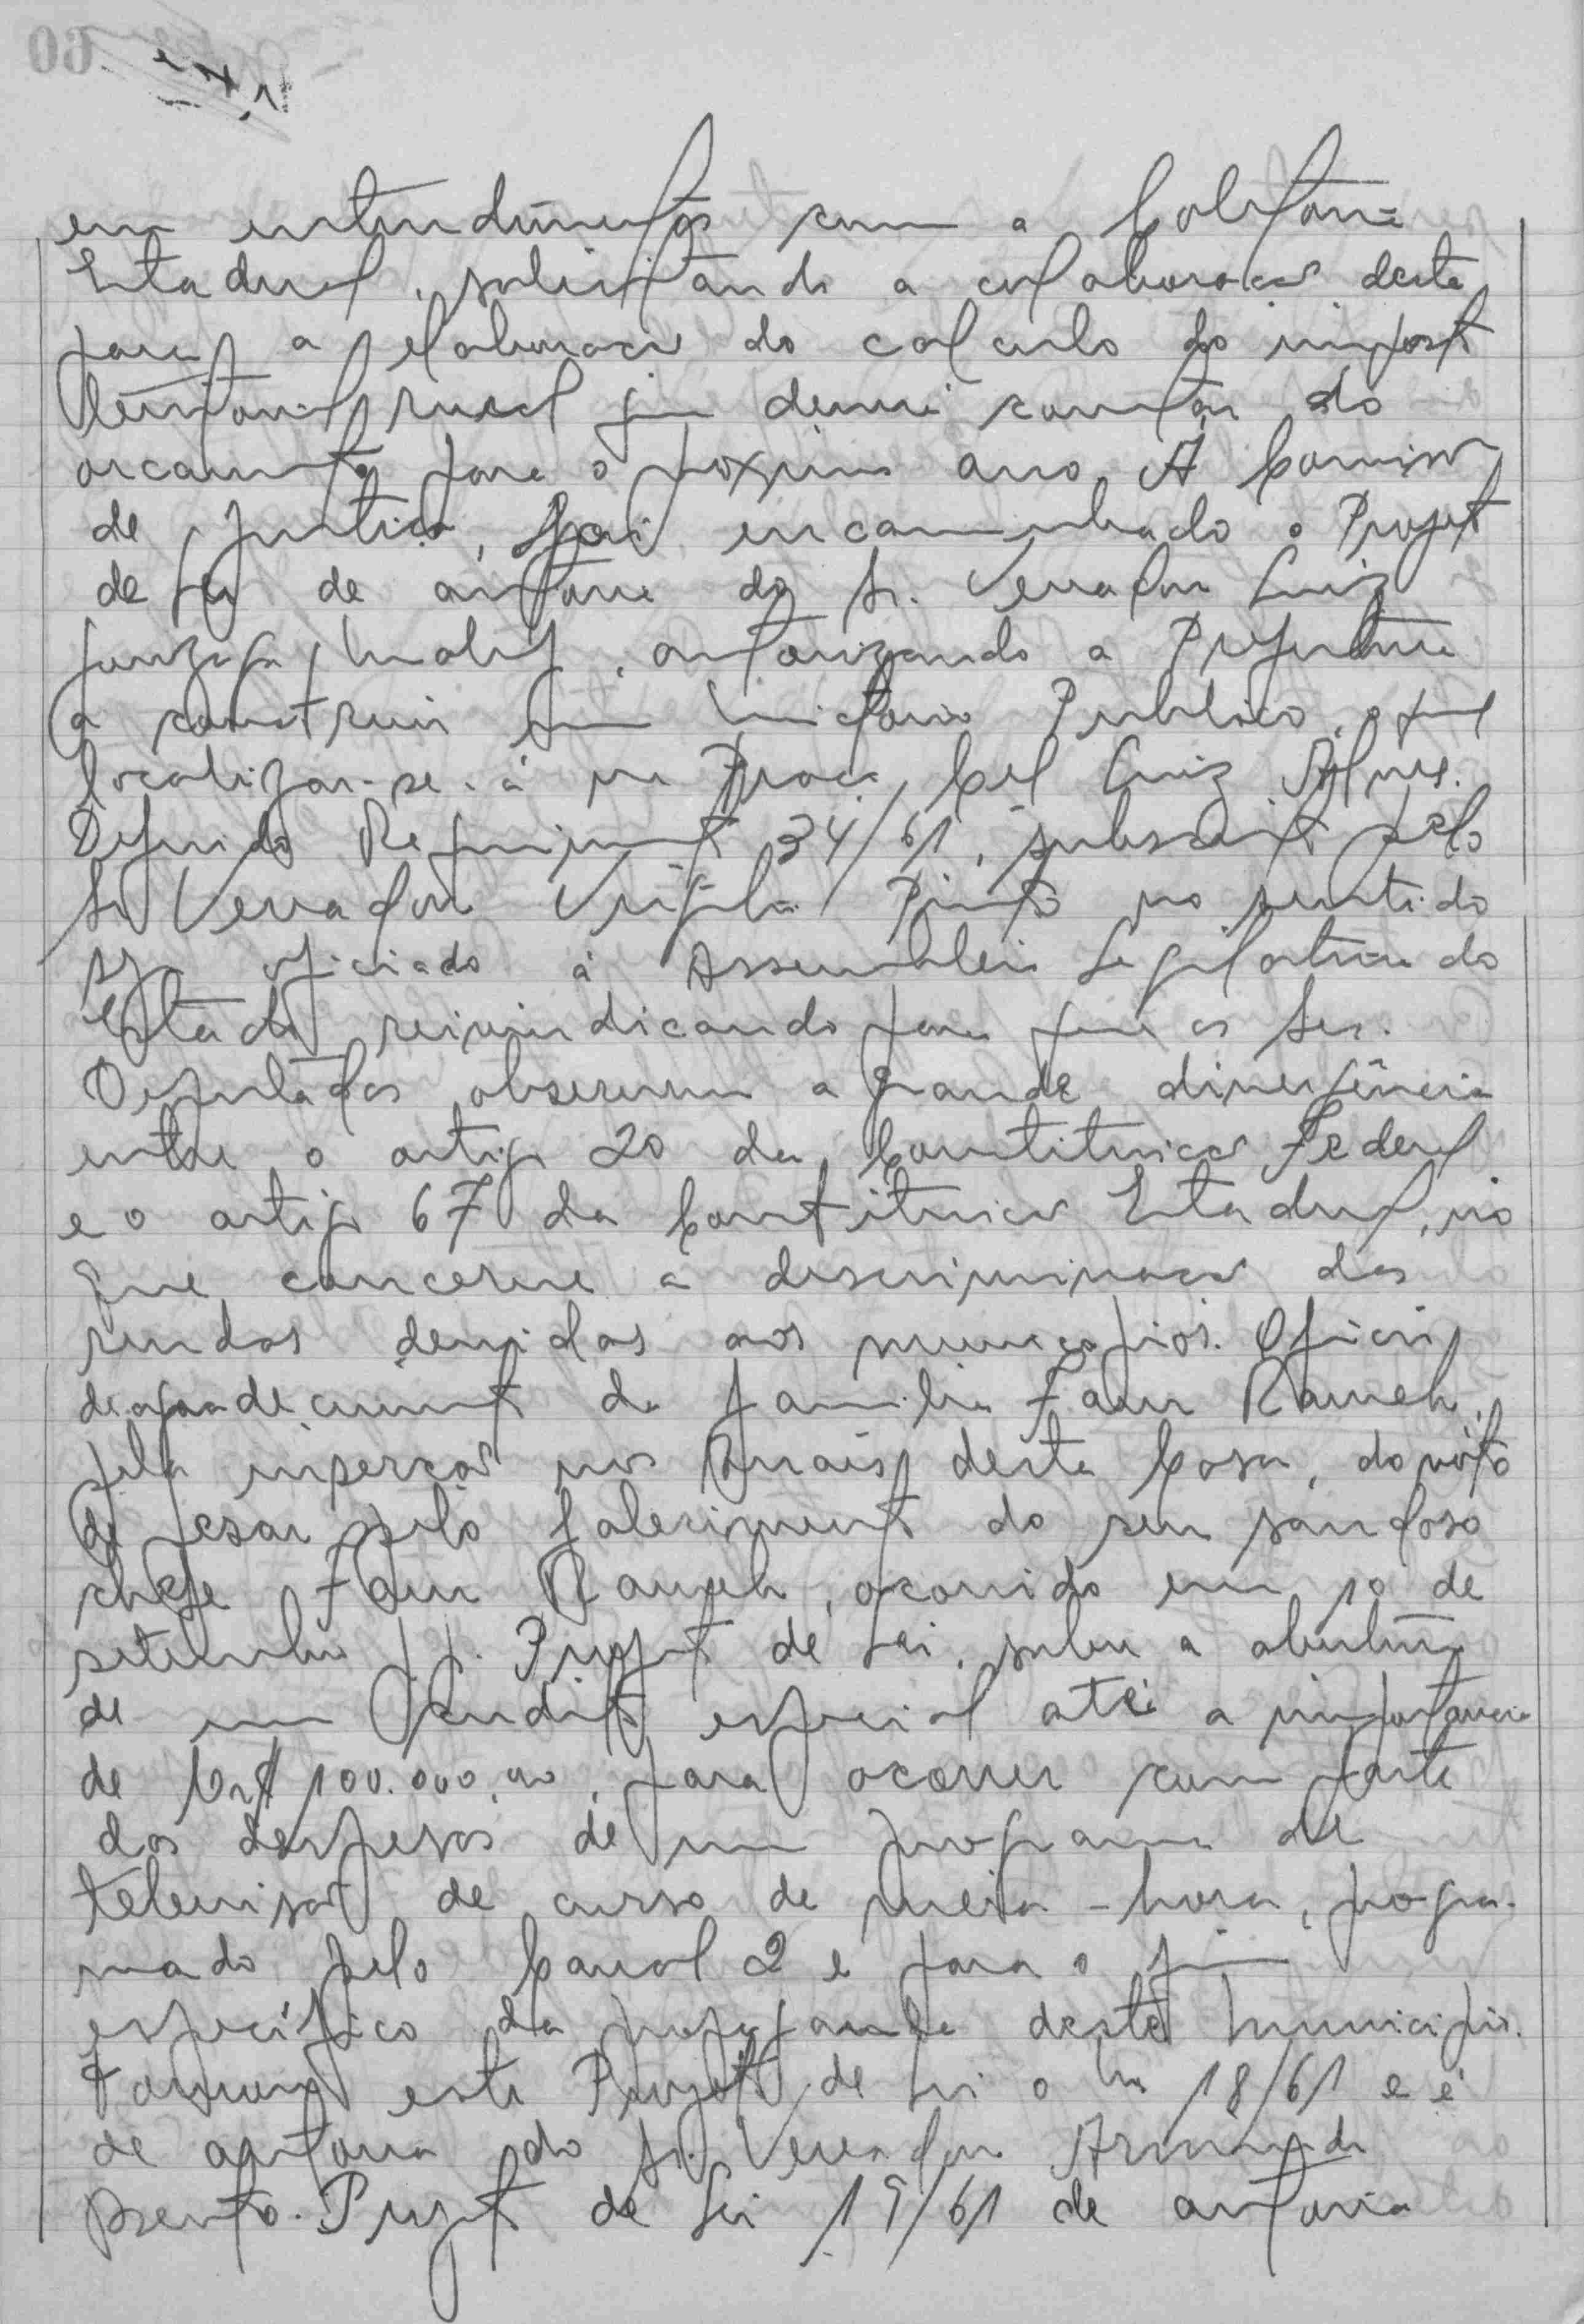 em entendimentos com a Coletoria
Estadual, solicitando a colaboracao desta
para a elaboracao do calculo do impost
territorial rural que devera constar do
orcamento para o proximo ano. A Comissao
de Justica, foi encaminhado o Projet
de lei de autoria do Sr. Vereador Luiz
Gonzaga, autorizando a Prefeitura
a construir um Mictorio Publico, o qual
localizar-se-á na Praca Cel Luiz Alves.
Deferido Requeriment 34/61, subscrit pelo
Sr Vereador Virgilio Pinto no sentido
seja oficiado á Assembleia Legislativa do
Estado reivindicando para que os Srs.
Deputados observem a grande divergência
entre o artigo 20 da Constituicao Federal
e o artigo 67 da Constituicao Estadual, no
que concerne a descriminacao das
rendas devidas aos municipios. Oficio
de agradeciment da familia Faur Rameh,
pela insercao nos Anais desta Casa, do voto
de pesar pelo faleciment do seu saudoso
chefe Faur Rameh, ocorrido em 10 de
setembro p.p. Projet de Lei, sobre a abertura
de um Credito especial até a importancia
de Cr$ 100.000,00, para ocorrer com parte
das despesas de um programa de
televisao de curso de meia-hora, progra-
mado pelo Canal 2 e para o fim
específico da propaganda deste Municipio.
Tomou este Projeto de Lei o No 18/61 e é
de autoria do Sr. Vereador Armando
Prento. Projet de Lei 19/61 de autoria